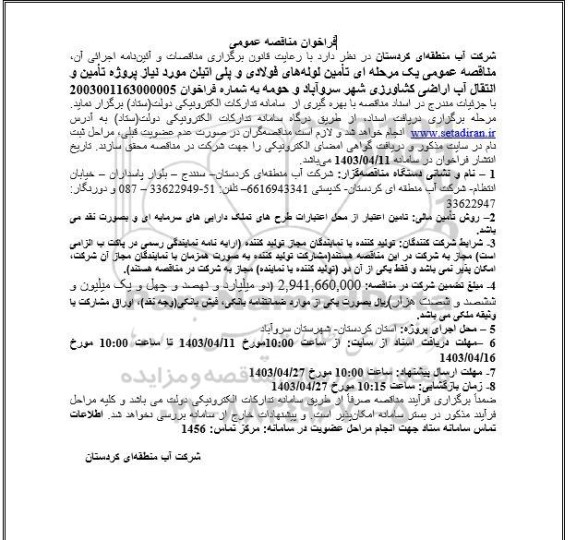 فراخوان مناقصه عمومی
شرکت آب منطقه‌ای کردستان در نظر دارد با رعایت قانون برگزاری مناقصات و آئین‌نامه اجرائی آن،
مناقصه عمومی یک مرحله ای تأمین لوله‌های فولادی و پلی اتیلن مورد نیاز پروژه تأمین و
انتقال آب اراضی کشاورزی شهر سروآباد و حومه به شماره فراخوان 2003001163000005
با جزئیات مندرج در اسناد مناقصه با بهره گیری از سامانه تدارکات الکترونیکی دولت(ستاد) برگزار نماید.
مرحله برگزاری دریافت اسناد، از طریق درگاه سامانه تدارکات الکترونیکی دولت(ستاد) به آدرس
www.setadiran.ir انجام خواهد شد و لازم است مناقصه‌گران در صورت عدم عضویت قبلی، مراحل ثبت
نام در سایت مذکور و دریافت گواهی امضای الکترونیکی را جهت شرکت در مناقصه محقق سازند. تاریخ
انتشار فراخوان در سامانه 1403/04/11 می‌باشد.
1 – نام و نشانی دستگاه مناقصه‌گزار: شرکت آب منطقه‌ای کردستان- سنندج – بلوار پاسداران – خیابان
انتظام- شرکت آب منطقه ای کردستان- کدپستی 6616943341– تلفن: 51-33622949 – 087 و دورنگار:
33622947
2– روش تأمین مالی: تامین اعتبار از محل اعتبارات طرح های تملک دارایی های سرمایه ای و بصورت نقد می
باشد.
3- شرایط شرکت کنندگان: تولید کننده یا نمایندگان مجاز تولید کننده (ارایه نامه نمایندگی رسمی در پاکت ب الزامی
است) مجاز به شرکت در این مناقصه هستند(مشارکت تولید کننده به صورت همزمان با نمایندگان مجاز آن شرکت،
امکان پذیر نمی باشد و فقط یکی از آن دو (تولید کننده یا نماینده) مجاز به شرکت در مناقصه هستند).
4- مبلغ تضمین شرکت در مناقصه: 2,941,660,000 (دو میلیارد و نهصد و چهل و یک میلیون و
ششصد و شصت هزار)ریال بصورت یکی از موارد ضمانتنامه بانکی، فیش بانکی(وجه نقد)، اوراق مشارکت یا
وثیقه ملکی می باشد.
5 – محل اجرای پروژه: استان کردستان- شهرستان سروآباد
6 –مهلت دریافت اسناد از سایت: از ساعت 10:00مورخ 1403/04/11 تا ساعت 10:00 مورخ
1403/04/16
7- مهلت ارسال پیشنهاد: ساعت 10:00 مورخ 1403/04/27
8- زمان بازگشایی: ساعت 10:15 مورخ 1403/04/27
ضمناً برگزاری فرآیند مناقصه صرفاً از طریق سامانه تدارکات الکترونیکی دولت می باشد و کلیه مراحل
فرآیند مذکور در بستر سامانه امکان‌پذیر است. و پیشنهادات خارج از سامانه بررسی نخواهد شد. اطلاعات
تماس سامانه ستاد جهت انجام مراحل عضویت در سامانه: مرکز تماس: 1456
شرکت آب منطقه‌ای کردستان